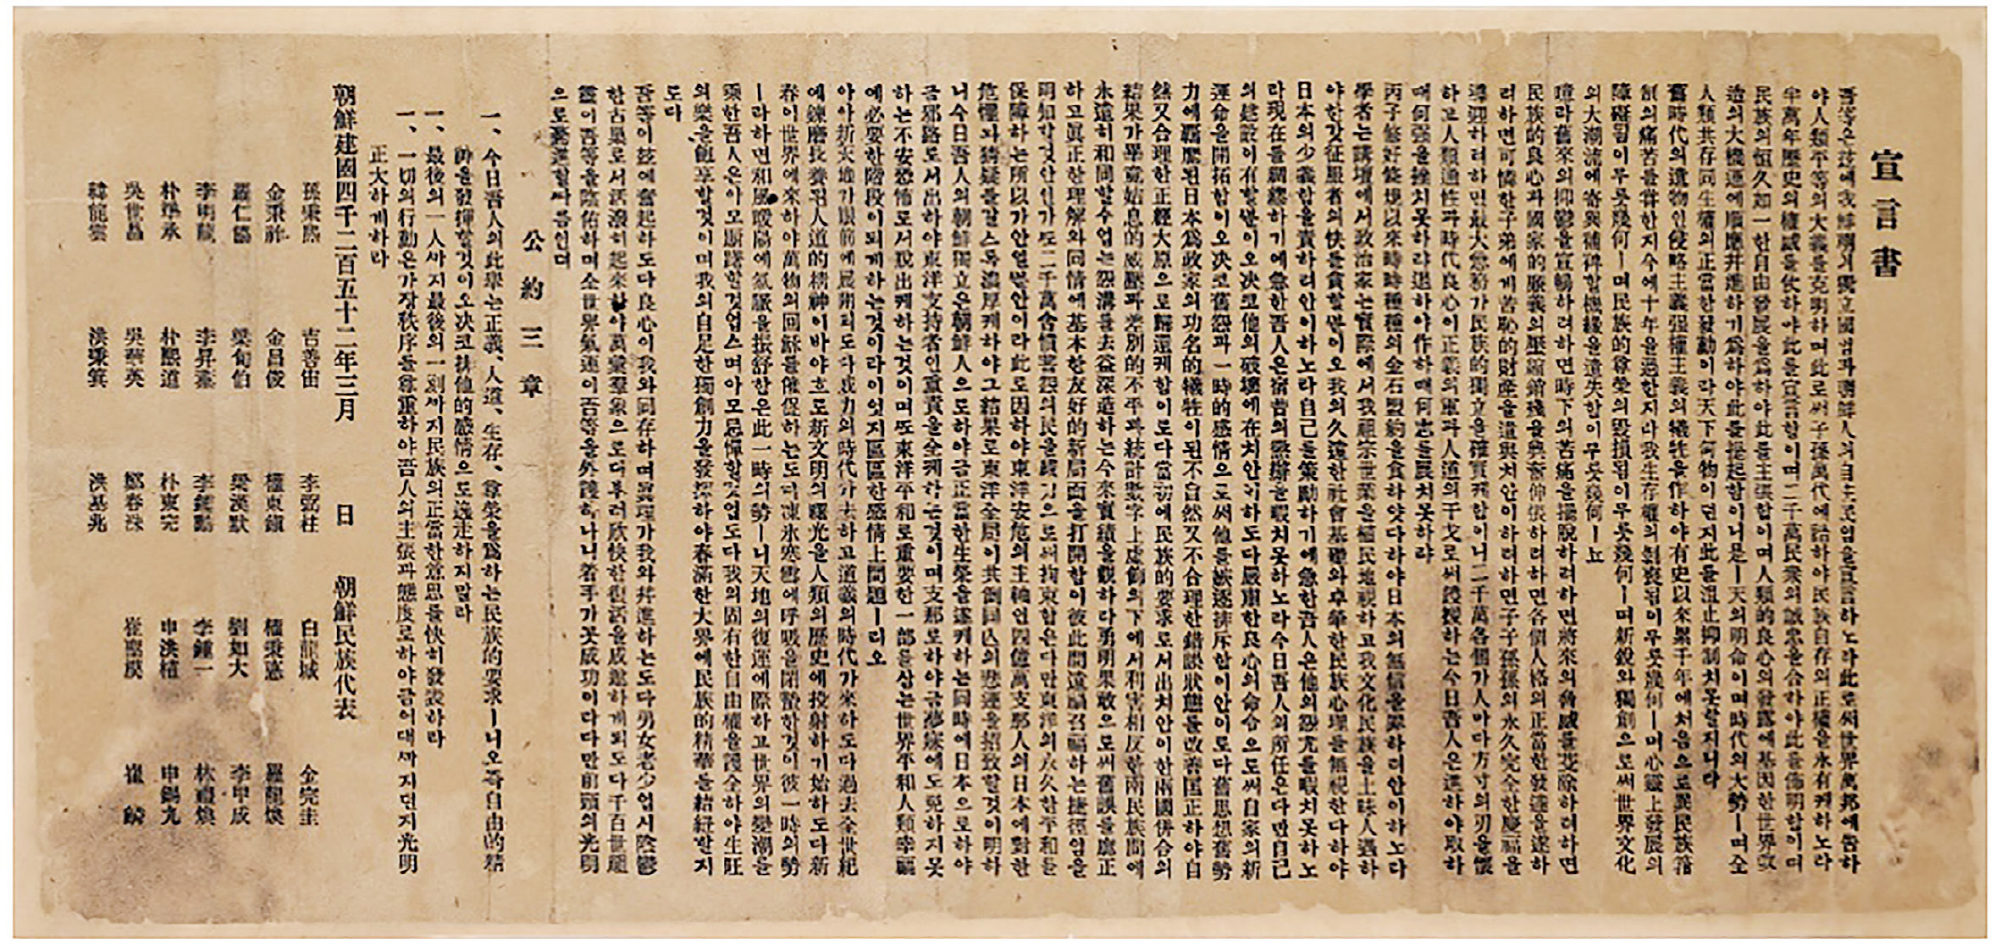 宣言書
吾等은玆에我鮮朝의獨立國임과朝鮮人의自主民임을宣言하노라此로써世界萬邦에告하
야人類平等의大義를克明하며此로써子孫萬代에誥하야民族自存의正權을永有케하노라
半萬年歷史의權威를仗하야此를宣言함이며二千萬民衆의誠忠을合하야此를佈明함이며
民族의恒久如一한自由發展을爲하야此를主張함이며人類的良心의發露에基因한世界改
造의大機運에順應幷進하기爲하야此를提起함이니是ㅣ天의明命이며時代의大勢ㅣ며全
人類共存同生權의正當한發動이라天下何物이던지此를沮止抑制치못할지니라
舊時代의遺物인侵略主義强權主義의犧牲을作하야有史以來累千年에처음으로異民族箝
制의痛苦를嘗한지今에十年을過한지라我生存權의剝喪됨이무릇幾何ㅣ며心靈上發展의
障礙됨이무릇幾何ㅣ며民族的尊榮의毁損됨이무릇幾何ㅣ며新銳와獨創으로써世界文化
의大潮流에寄與補裨할機緣을遺失함이무릇幾何ㅣ뇨
噫라舊來의抑鬱을宣暢하려하면時下의苦痛을擺脫하려하면將來의脅威를芟除하려하면
民族的良心과國家的廉義의壓縮銷殘을興奮伸張하려하면各個人格의正當한發達을遂하
려하면可憐한子弟에게苦恥的財產을遺與치안이하려하면子子孫孫의永久完全한慶福을
導迎하려하면最大急務가民族的獨立을確實케함이니二千萬各個가人마다方寸의刃을懷
하고人類通性과時代良心이正義의軍과人道의干戈로써護援하는今日吾人은進하야取하
매何强을挫치못하랴退하야作하매何志를展치못하랴
丙子修好條規以來時時種種의金石盟約을食하얏다하야日本의無信을罪하려안이하노라
學者는講壇에서政治家는實際에서我祖宗世業을植民地視하고我文化民族을土昧人遇하
야한갓征服者의快를貪할뿐이오我의久遠한社會基礎와卓犖한民族心理를無視한다하야
日本의少義함을責하려안이하노라自己를策勵하기에急한吾人은他의怨尤를暇치못하노
라現在를綢繆하기에急한吾人은宿昔의懲辦을暇치못하노라今日吾人의所任은다만自己
의建設이有할뿐이오決코他의破壞에在치안이하도다嚴肅한良心의命令으로써自家의新
運命을開拓함이오決코舊怨과一時的感情으로써他를嫉逐排斥함이안이로다舊思想舊勢
力에羈縻된日本爲政家의功名的犧牲이된不自然又不合理한錯誤狀態를改善匡正하야自
然又合理한正經大原으로歸還케함이로다當初에民族的要求로서出치안이한兩國倂合의
結果가畢竟姑息的威壓과差別的不平과統計數字上虛飾의下에서利害相反한兩民族間에
永遠히和同할수업는怨溝를去益深造하는今來實績을觀하라勇明果敢으로써舊誤를廓正
하고眞正한理解와同情에基本한友好的新局面을打開함이彼此間遠禍召福하는捷徑임을
明知할것안인가또二千萬含憤蓄怨의民을威力으로써拘束함은다만東洋의永久한平和를
保障하는所以가안일뿐안이라此로因하야東洋安危의主軸인四億萬支那人의日本에對한
危懼와猜疑를갈스록濃厚케하야그結果로東洋全局이共倒同亡의悲運을招致할것이明하
니今日吾人의朝鮮獨立은朝鮮人으로하야금正當한生榮을遂케하는同時에日本으로하야
금邪路로서出하야東洋支持者인重責을全케하는것이며支那로하야금夢寐에도免하지못
하는不安恐怖로서脫出케하는것이며또東洋平和로重要한一部를삼는世界平和人類幸福
에必要한階段이되게하는것이라이엇지區區한感情上問題ㅣ리오
아아新天地가眼前에展開되도다威力의時代가去하고道義의時代가來하도다過去全世紀
에鍊磨長養된人道的精神이바야흐로新文明의曙光을人類의歷史에投射하기始하도다新
春이世界에來하야萬物의回穌를催促하는도다凍氷寒雪에呼吸을閉蟄한것이彼一時의勢
ㅣ라하면和風暖陽에氣脈을振舒함은此一時의勢ㅣ니天地의復運에際하고世界의變潮를
乘한吾人은아모躕躇할것업스며아모忌憚할것업도다我의固有한自由權을護全하야生旺
의樂을飽享할것이며我의自足한獨創力을發揮하야春滿한大界에民族的精華를結紐할지
로다
吾等이玆에奮起하도다良心이我와同存하며眞理가我와幷進하는도다男女老少업시陰鬱
한古巢로서活潑히起來하야萬彙羣象으로더부러欣快한復活을成遂하게되도다千百世祖
靈이吾等을陰佑하며全世界氣運이吾等을外護하나니着手가곳成功이라다만前頭의光明
으로驀進할따름인뎌
公約三章
一、今日吾人의此擧는正義、人道、生存、尊榮을爲하는民族的要求ㅣ니오즉自由的精
神을發揮할것이오決코排他的感情으로逸走하지말라
一、最後의一人까지最後의一刻까지民族의正當한意思를快히發表하라
一、一切의行動은가장秩序를尊重하야吾人의主張과態度로하야금어대까지던지光明
正大하게하라
朝鮮建國四千二百五十二年三月　日　朝鮮民族代表
孫秉熙　吉善宙　李弼柱　白龍城　金完圭
金秉祚　金昌俊　權東鎭　權秉悳　羅龍煥
羅仁協　梁甸伯　梁漢默　劉如大　李甲成
李明龍　李昇薰　李鍾勳　李鍾一　林禮煥
朴準承　朴熙道　朴東完　申洪植　申錫九
吳世昌　吳華英　鄭春洙　崔聖模　崔　麟
韓龍雲　洪秉箕　洪基兆